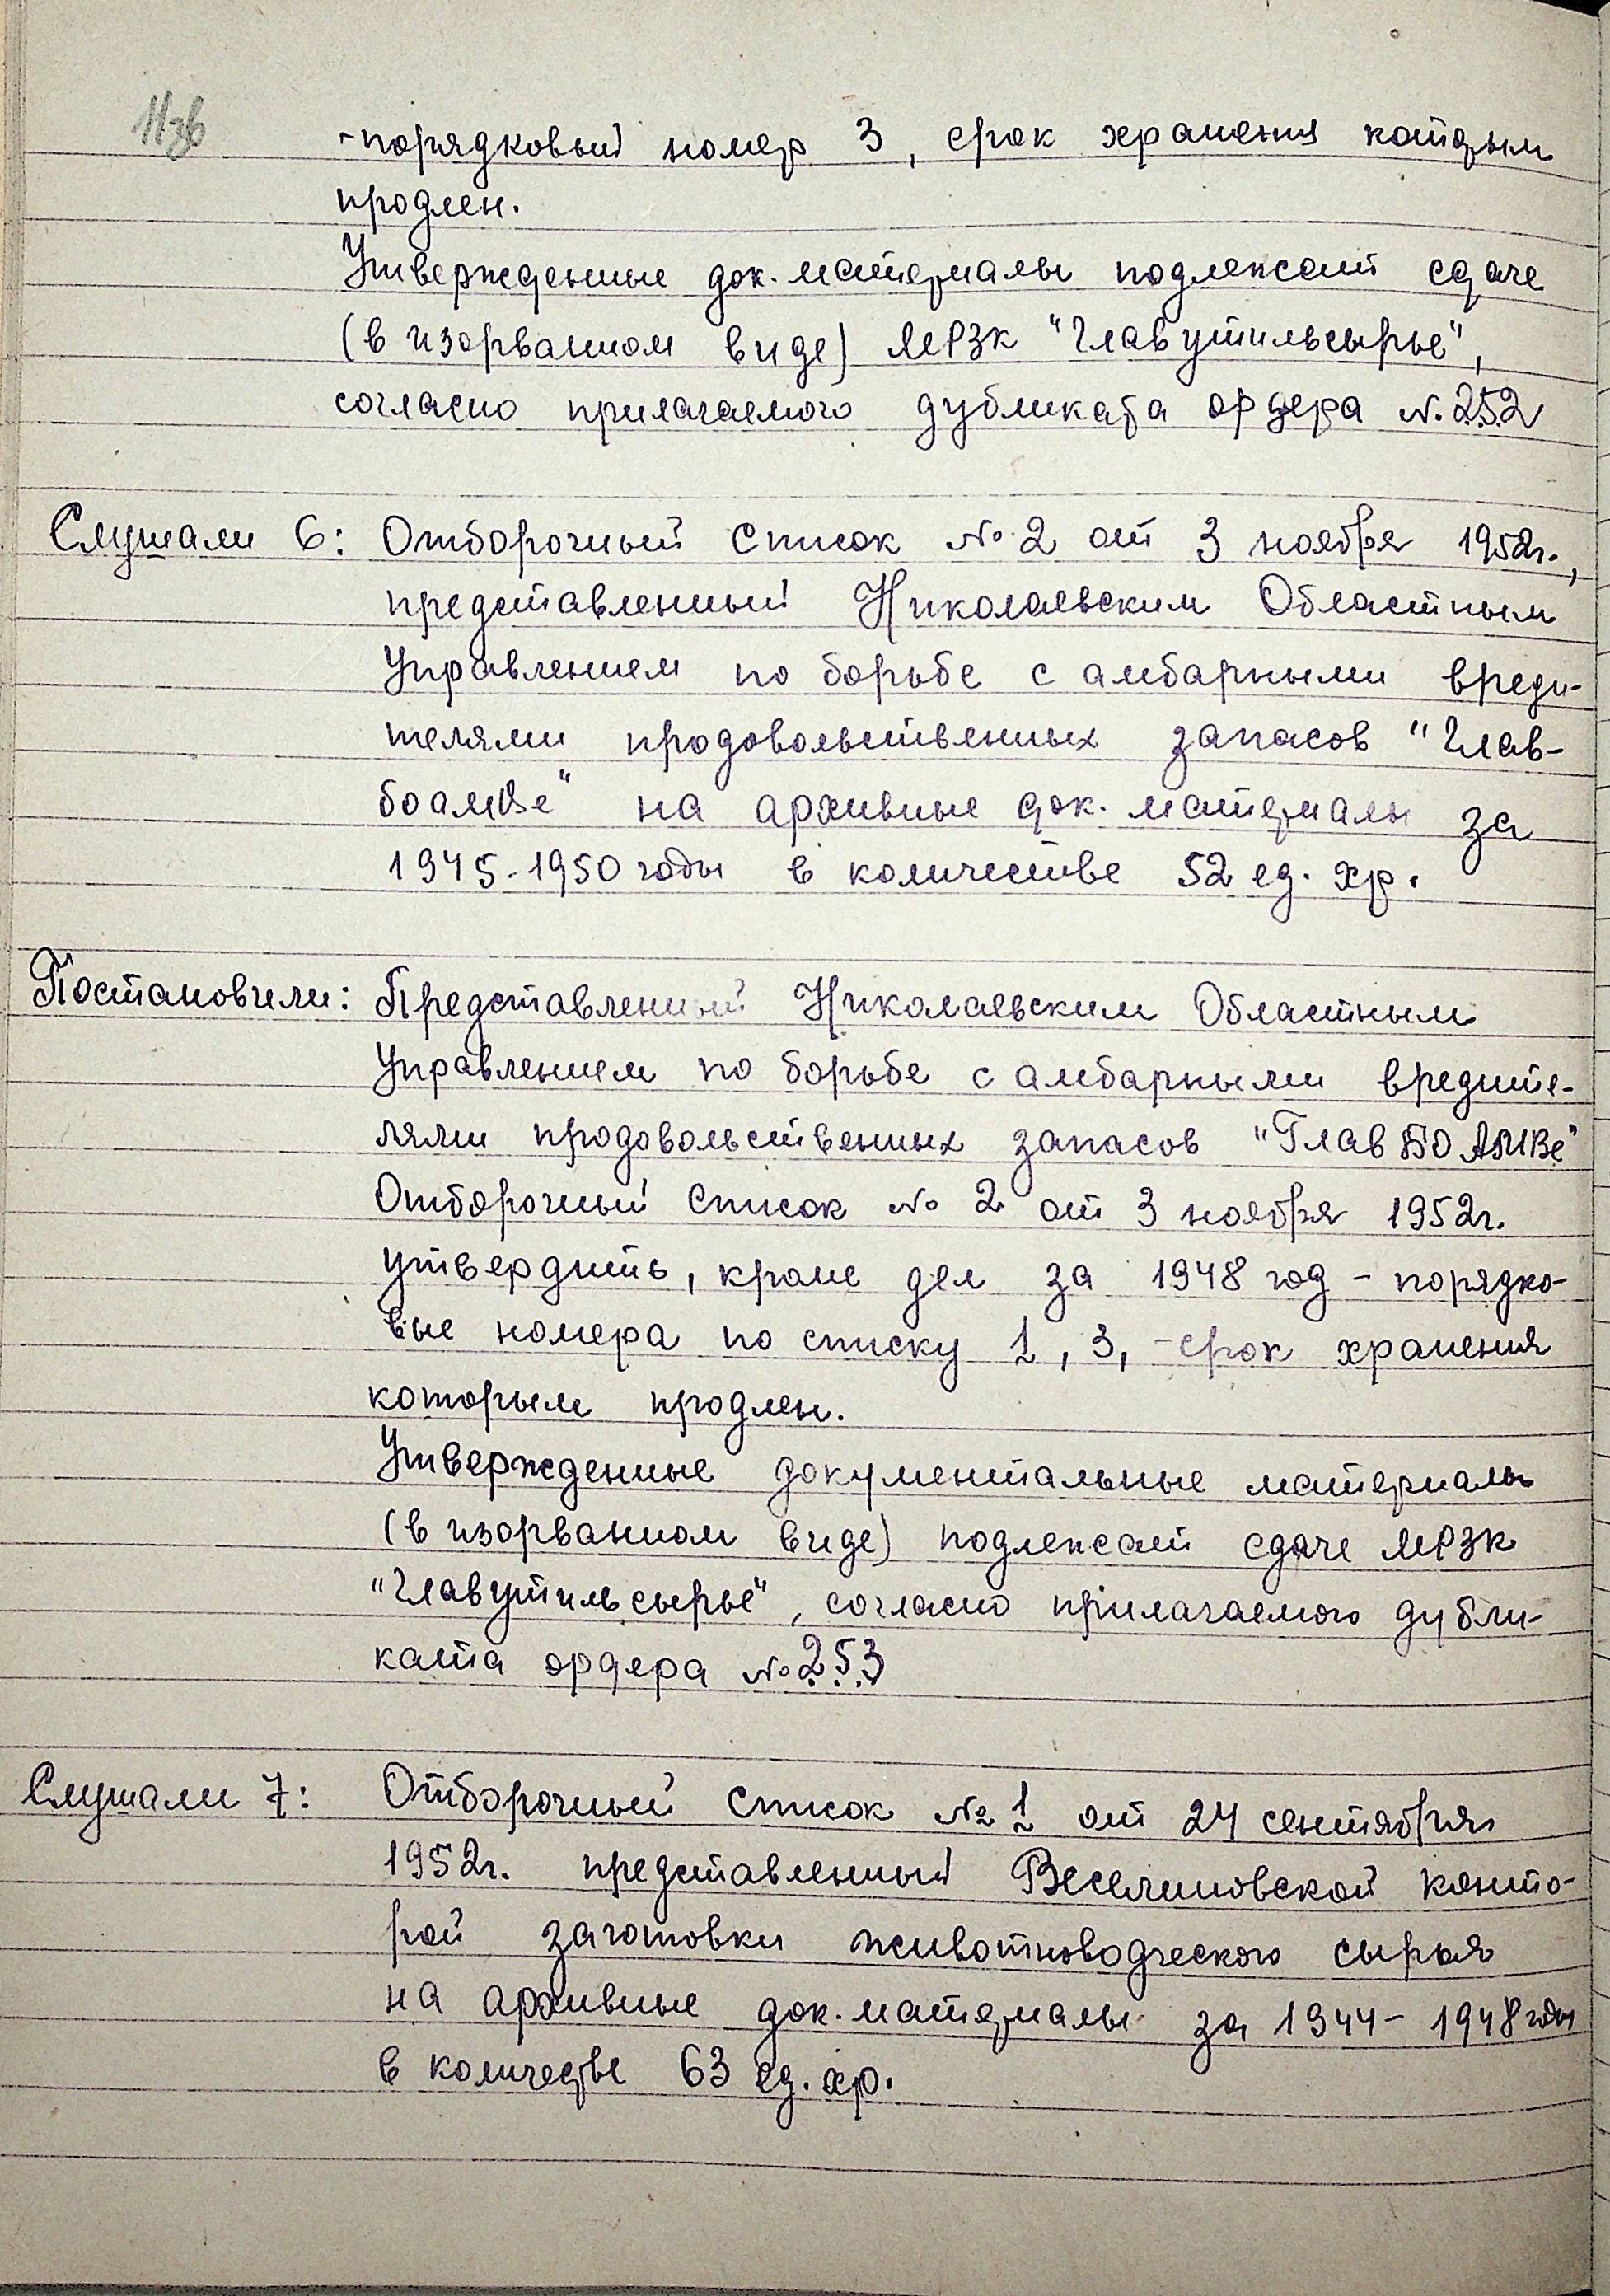 11зв
-порядковый номер 3, срок хранения которым
продлен.
Утвержденные док. материалы подлежат сдаче
(в изорванном виде) МРЗК "Главутильсырье",
согласно прилагаемого дубликата ордера №252
Слушали 6: Отборочный список №2 от 3 ноября 1952г.,
представленный Николаевским Областным
Управлением по борьбе с амбарными вреди-
телями продовольственных запасов "Глав-
боамве" на архивные док. материалы за
1945-1950 годы в количестве 52 ед. хр.
Постановили: Представленный Николаевским Областным
Управлением по борьбе с амбарными вредите-
лями продовольственных запасов "ГлавБОАМВе"
Отборочный список № 2 от 3 ноября 1952г.
утвердить, кроме дел за 1948 год - порядко-
вые номера по списку 1, 3, - срок хранения
которым продлен.
Утвержденные документальные материалы
(в изорванном виде) подлежат сдаче МРЗК
"Главутильсырье", согласно прилагаемого дубли-
ката ордера №253
Слушали 7: Отборочный список № 1 от 24 сентября
1952г. представленный Веселиновской конто-
рой заготовки животноводческого сырья
на архивные док. материалы за 1944- 1948 годы
в количестве 63 ед. хр.